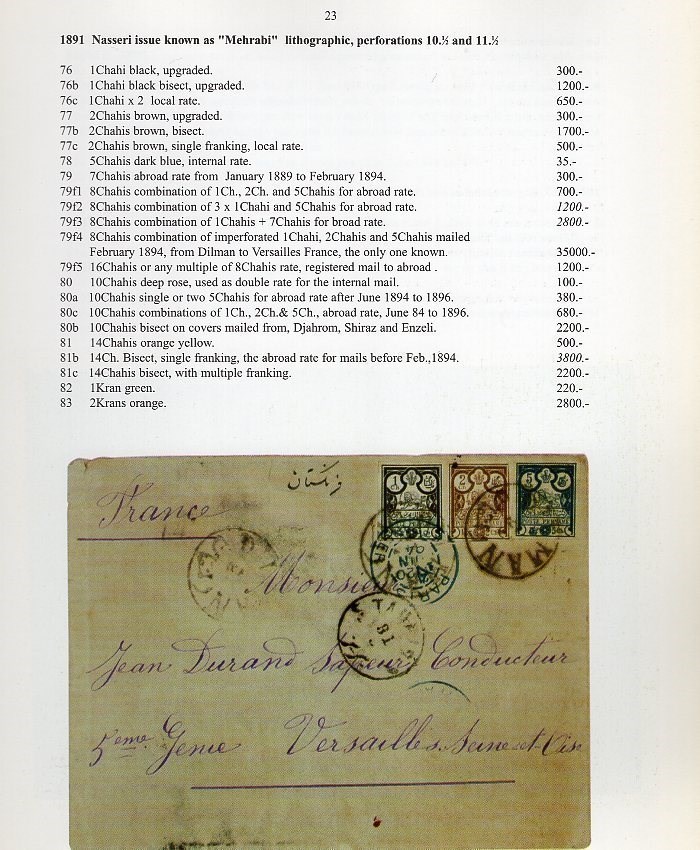 23
1891 Nasseri issue known as "Mehrabi" lithographic, perforations 10.½ and 11.½
76 1Chahi black, upgraded. 300.-
76b 1Chahi black bisect, upgraded. 1200.-
76c 1Chahi x 2 local rate. 650.-
77 2Chahis brown, upgraded. 300.-
77b 2Chahis brown, bisect. 1700.-
77c 2Chahis brown, single franking, local rate. 500.-
78 5Chahis dark blue, internal rate. 35.-
79 7Chahis abroad rate from January 1889 to February 1894. 300.-
79f1 8Chahis combination of 1Ch., 2Ch. and 5Chahis for abroad rate. 700.-
79f2 8Chahis combination of 3 x 1Chahi and 5Chahis for abroad rate. 1200.-
79f3 8Chahis combination of 1Chahis + 7Chahis for broad rate. 2800.-
79f4 8Chahis combination of imperforated 1Chahi, 2Chahis and 5Chahis mailed
February 1894, from Dilman to Versailles France, the only one known. 35000.-
79f5 16Chahis or any multiple of 8Chahis rate, registered mail to abroad . 1200.-
80 10Chahis deep rose, used as double rate for the internal mail. 100.-
80a 10Chahis single or two 5Chahis for abroad rate after June 1894 to 1896. 380.-
80c 10Chahis combinations of 1Ch., 2Ch.& 5Ch., abroad rate, June 84 to 1896. 680.-
80b 10Chahis bisect on covers mailed from, Djahrom, Shiraz and Enzeli. 2200.-
81 14Chahis orange yellow. 500.-
81b 14Ch. Bisect, single franking, the abroad rate for mails before Feb.,1894. 3800.-
81c 14Chahis bisect, with multiple franking. 2200.-
82 1Kran green. 220.-
83 2Krans orange. 2800.-
فرنگستان
1 2 5
France
Monsieur
Jean Durand Sapeur Conducteur
5eme Genie Versailles. Seine-et-Oise